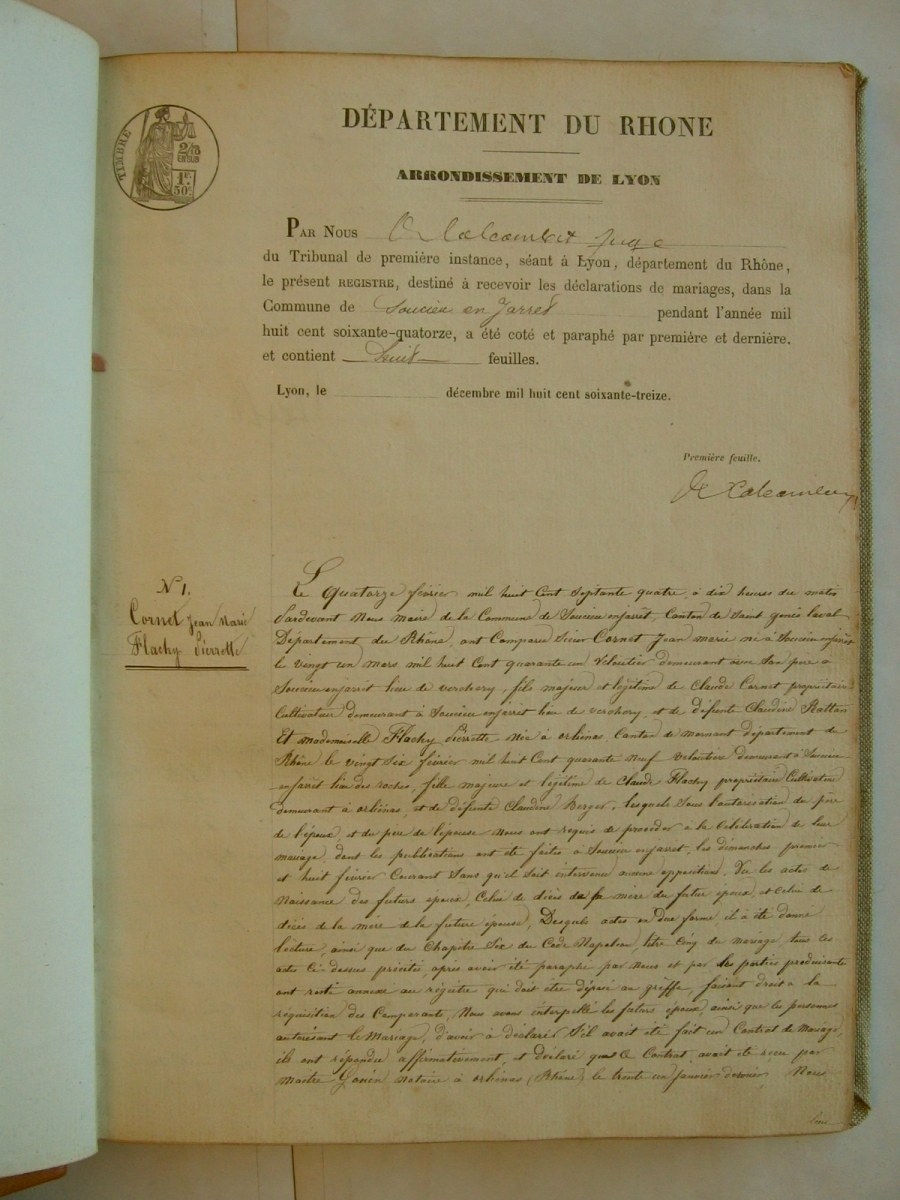 TIMBRE
2/10
EN SUS
1F.
50c
DÉPARTEMENT DU RHONE
ARRONDISSEMENT DE LYON
PAR NOUS juge
du Tribunal de première instance, séant à Lyon, département du Rhône,
le présent REGISTRE, destiné à recevoir les déclarations de mariages, dans la
Commune de Soucieu en Jarret pendant l'année mil
huit cent soixante-quatorze, a été coté et paraphé par première et dernière.
et contient huit feuilles.
Lyon, le décembre mil huit cent soixante-treize.
Première feuille.
N 1.
Cornet Jean Marie
Flachy Pierrette
Le Quatorze février mil huit Cent Septante quatre, à dix heures du matin
Pardevant Nous Maire de la Commune de Soucieu enjarret, Canton de Saint genis laval
Département du Rhône, ont Comparu Sieur Cornet Jean marie né à Soucieu enjarret
le vingt un mars mil huit Cent quarante un Veloutier demeurant avec San père à
Soucieu enjarret lieu de verchery, fils majeur et légitime de Claude Cornet propriétaire
Cultivateur demeurant à Soucieu enjarret lieu de verchery, et de défunte Claudine Rattan
Et mademoiselle Flachy Pierrette Née à orliénas Canton de mornant département du
Rhône le vingt Six février mil huit Cent quarante neuf veloutière demeurant à Soucieu
enjarret lieu des roches, fille majeure et légitime de Claude Flachy propriétaire Cultivateur
demeurant à orliénas, et de défunte Claudine Berger, lesquels Sous l'autorisation du père
de l'époux, et du père de l'épouse Nous ont requis de procéder à la Célébration de leur
mariage, dont les publications ont été faites à Soucieu enjarret, les dimanches premier
et huit février Courant Sans qu'il Soit intervenu aucune opposition, Vu les actes de
Naissance des futurs époux, Celui de décès de la mère du futur époux, et Celui de
décès de la mère de la future épouse, Desquels actes en due forme il a été donné
lecture, ainsi que du Chapitre Six du Code Napoléon, titre Cinq du mariage, tous les
actes Ci-dessus précités, après avoir été paraphé par Nous et par les parties produisante
ont resté annexé au régistre qui doit être déposé au greffe, faisant droit à la
réquisition des Comparants, Nous avons interpellé les futurs époux, ainsi que les personnes
autorisant le Mariage, d'avoir à déclaré S'il avait été fait un Contrat de Mariage,
ils ont répondu affirmativement, et déclaré que Ce Contrat, avait été recu par
maître notaire à orliénas (Rhône) le trente un Janvier dernier Nous